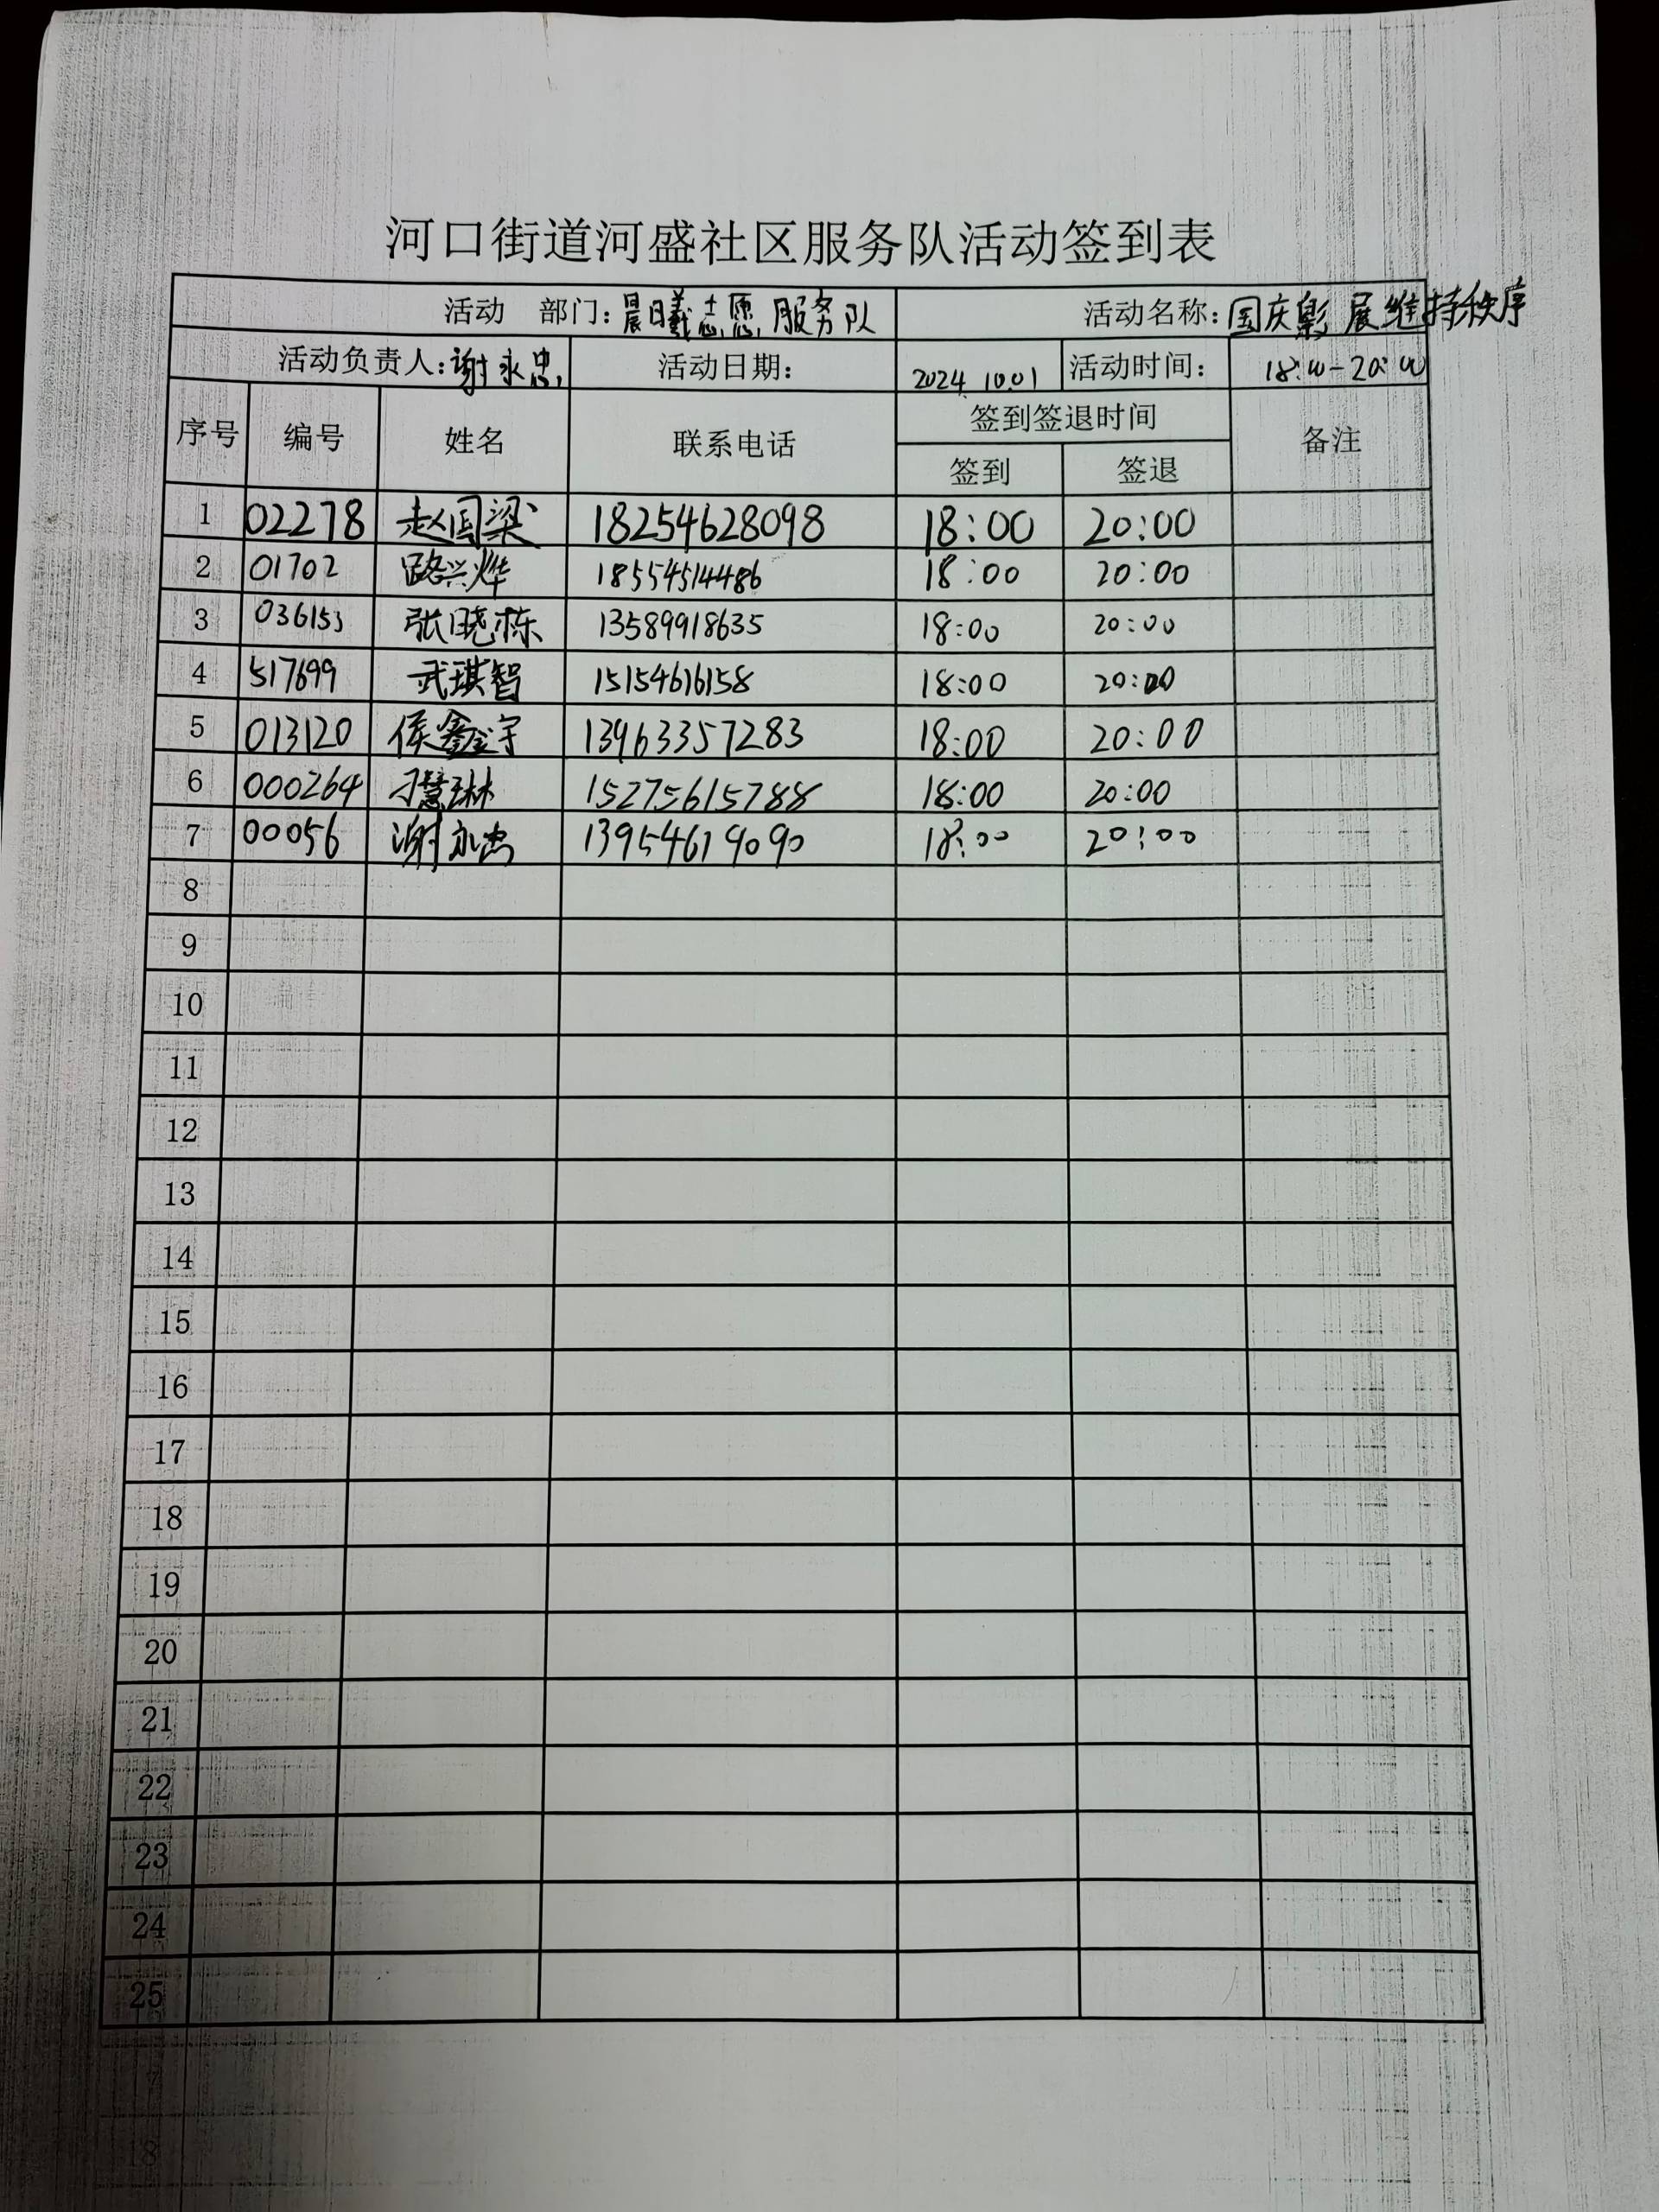 河口街道河盛社区服务队活动签到表
活动 部门：晨曦志愿服务队 活动名称：国庆影展维持秩序
活动负责人：谢永忠 活动日期： 2024.10.01 活动时间： 18:00-20:00
序号 编号 姓名 联系电话 签到签退时间 备注
签到 签退
1 02278 赵国梁 18254628098 18:00 20:00
2 01702 路兴烨 18554514486 18:00 20:00
3 036153 张晓栋 13589918635 18:00 20:00
4 517699 武琪智 15154616158 18:00 20:00
5 013120 侯鑫宇 13963357283 18:00 20:00
6 000264 刁慧琳 15275615788 18:00 20:00
7 00056 谢永忠 13954619090 18:00 20:00
8
9
10
11
12
13
14
15
16
17
18
19
20
21
22
23
24
25
18